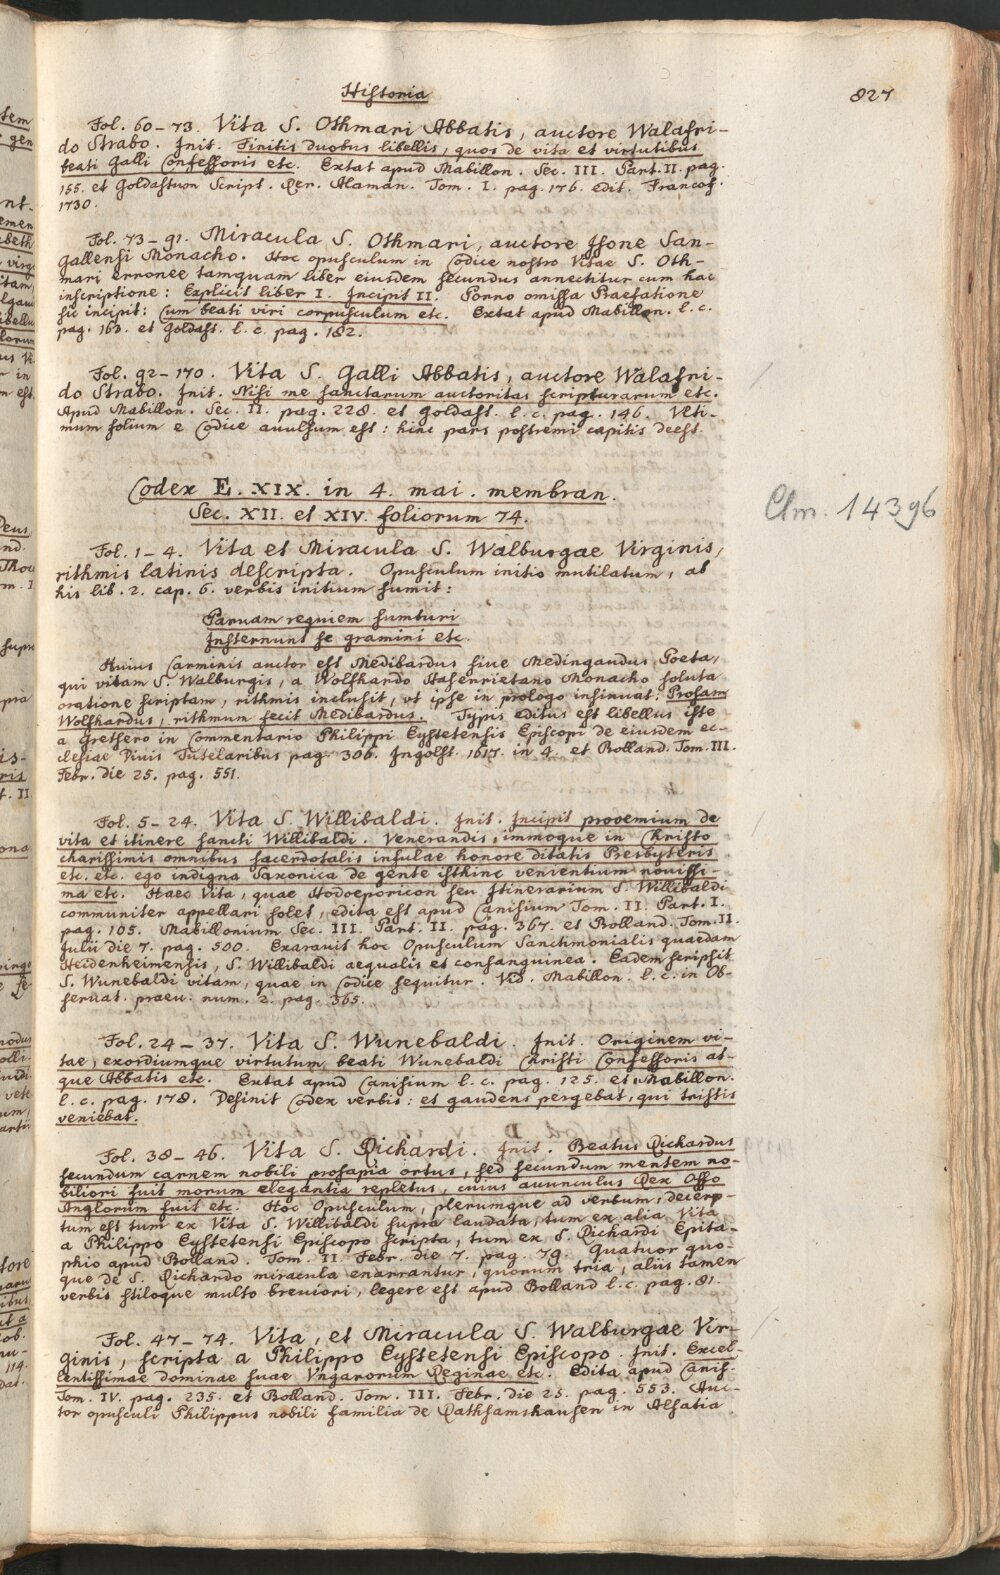 Historia
827
Fol. 60-73. Vita S. Othmari Abbatis, auctore Walafri-
do Strabo. Init. Finitis duobus libellis, quos de vita et virtutibus
beati Galli Confessoris etc. Extat apud Mabillon. Sec. III. Part. II. pag.
155. et Goldastum Script. Rer. Alaman. Tom. I. pag. 176. edit. Francof.
1730.
Fol. 73-91. Miracula S. Othmari, auctore Isone San-
gallensi Monacho. Hoc opusculum in Codice nostro Vitae S. Oth-
mari erronee tamquam liber eiusdem secundus annectitur cum hac
inscriptione: Explicit liber I. Incipit II. Porro omissa Praefatione
sic incipit: Cum beati viri corpusculum etc. Extat apud Mabillon. l. c.
pag. 163. et Goldast. l. c. pag. 182.
Fol. 92-170. Vita S. Galli Abbatis, auctore Walafri-
do Strabo. Init. Nisi me sanctarum auctoritas scripturarum etc.
Apud Mabillon. Sec. II. pag. 228. et Goldast. l. c. pag. 146. Ulti-
mum folium e Codice avulsum est: hinc pars postremi capitis deest.
Codex E. XIX. in 4. mai. membran.
Sec. XII. et XIV. foliorum 74.
Clm. 14396
Fol. 1-4. Vita et Miracula S. Walburgae Virginis,
rithmis latinis descripta. Opusculum initio mutilatum, ab
his lib. 2. cap. 6. verbis initium sumit:
Parvam requiem sumturi
Insternunt se gramini etc.
Huius Carminis auctor est Medibardus sive Medingaudus Poeta,
qui vitam S. Walburgis, a Wolfhardo Hasenrietano Monacho soluta
oratione scriptam, rithmis inclusit, ut ipse in prologo insinuat: Prosam
Wolfhardus, rithmum fecit Medibardus. Typis editus est libellus iste
a Gretsero in Commentario Philippi Eystetensis Episcopi de eiusdem ec-
clesiae Divis Tutelaribus pag. 306. Ingolst. 1617. in 4. et Bolland. Tom. III.
Febr. die 25. pag. 551.
Fol. 5-24. Vita S. Willibaldi. Init. Incipit prooemium de
vita et itinere sancti Willibaldi. Venerandis, immoque in Christo
charissimis omnibus sacerdotalis insulae honore ditatis Presbyteris
etc. etc. ego indigna Saxonica de gente isthinc venientium novissi-
ma etc. Haec Vita, quae Hodoeporicon seu Itinerarium S. Willibaldi
communiter appellari solet, edita est apud Canisium Tom. II. Part. I.
pag. 105. Mabillonium Sec. III. Part. II. pag. 367. et Bolland. Tom. II.
Julii die 7. pag. 500. Exaravit hoc Opusculum Sanctimonialis quaedam
Heidenheimensis, S. Willibaldi aequalis et consanguinea. Eadem scripsit
S. Wunebaldi vitam, quae in Codice sequitur. Vid. Mabillon. l. c. in Ob-
servat. praeu. num. 2. pag. 365.
Fol. 24-37. Vita S. Wunebaldi. Init. Originem vi-
tae, exordiumque virtutum beati Wunebaldi Christi Confessoris at-
que Abbatis etc. Extat apud Canisium l. c. pag. 125. et Mabillon.
l. c. pag. 178. Desinit Codex verbis: et gaudens pergebat, qui tristis
veniebat.
Fol. 38-46. Vita S. Richardi. Init. Beatus Richardus
secundum carnem nobili prosapia ortus, sed secundum mentem no-
biliori fuit morum elegantia repletus, cuius avunculus Rex Offo
Anglorum fuit etc. Hoc Opusculum, plerumque ad verbum, decerp-
tum est tum ex Vita S. Willibaldi supra laudata, tum ex alia Vita
a Philippo Eystetensi Episcopo scripta, tum ex S. Richardi Epita-
phio apud Bolland. Tom. II. Febr. die 7. pag. 79. Quatuor quo-
que de S. Richardo miracula enarrantur, quorum tria, aliis tamen
verbis stiloque multo breviori, legere est apud Bolland l. c. pag. 81.
Fol. 47-74. Vita, et Miracula S. Walburgae Vir-
ginis, scripta a Philippo Eystetensi Episcopo. Init. Excel-
lentissimae dominae suae Vngarorum Reginae etc. Edita apud Canis.
Tom. IV. pag. 235. et Bolland. Tom. III. Febr. die 25. pag. 553. Auc-
tor opusculi Philippus nobili familia de Rathsamshausen in Alsatia